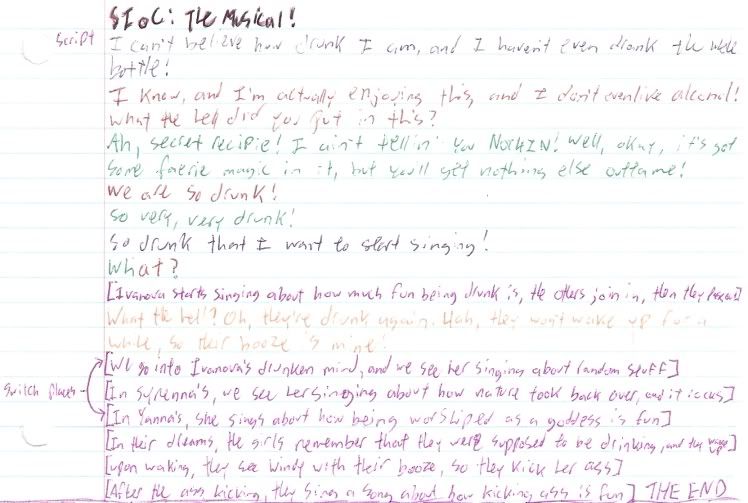 SIoC: The Musical!
Script
I can't believe how drunk I am, and I haven't even drank the whole
bottle!
I know, and I'm actually enjoying this, and I don't even like alcohol!
What the hell did you put in this?
Ah, secret recipie! I ain't tellin' you NOTHIN! Well, okay, it's got
some faerie magic in it, but you'll get nothing else outtame!
We are so drunk!
So very, very drunk!
So drunk that I want to start singing!
What?
[Ivanova starts singing about how much fun being drunk is, the others join in, then they pass out]
What the hell? Oh, they're drunk again. Hah, they won't wake up for a
while, so their booze is mine!
[We go into Ivanova's drunken mind, and we see her singing about random stuff]
Switch places
[In Syrenna's, we see her singing about how nature took back over, and it rocks]
[In Yanna's, she sings about how being worshiped as a goddess is fun]
[In their dreams, the girls remember that they were supposed to be drinking, and they wake up]
[Upon waking, they see Windy with their booze, so they kick her ass]
[After the ass kicking, they sing a song about how kicking ass is fun] THE END